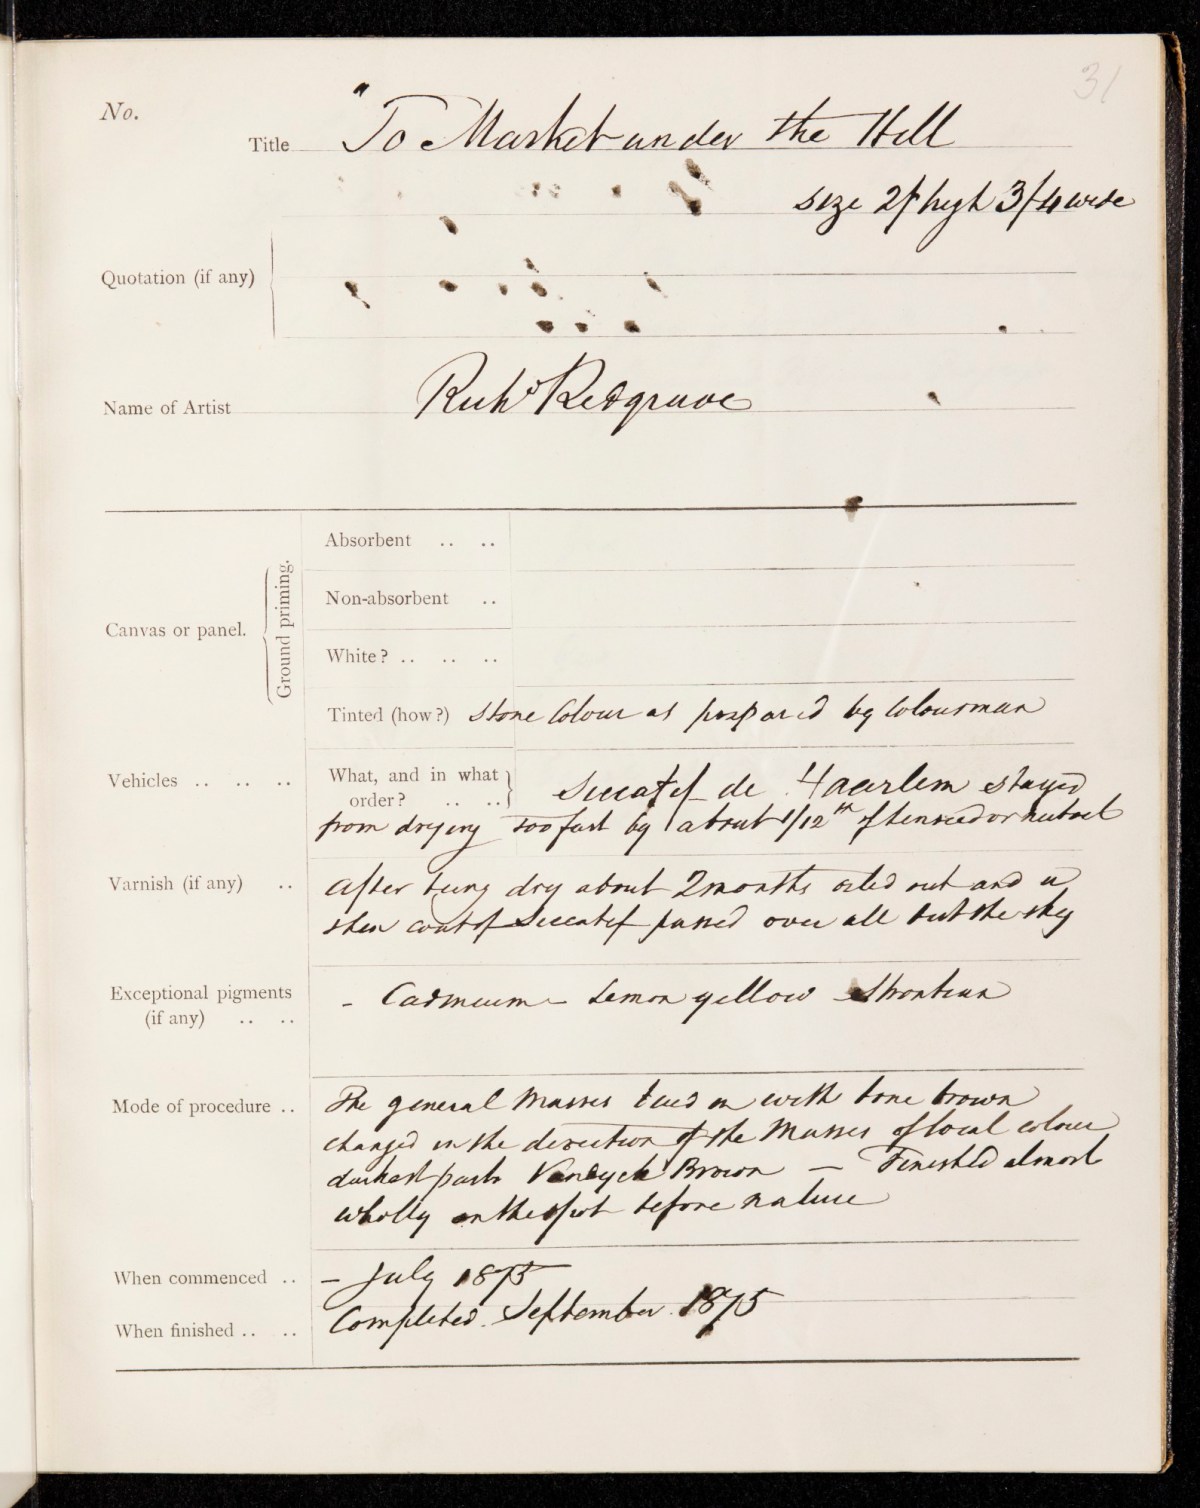 31
No.
Title "To Market under the Hill
size 2f high 3f 4 wide
Quotation (if any)
Name of Artist Richd Redgrave
Canvas or panel.
Ground priming.
Absorbent .. ..
Non-absorbent ..
White? .. .. ..
Tinted (how?) Stone Colour as prepared by Colourman
Vehicles .. .. .. What, and in what order? .. .. Siccatif de Haarlem stayed
from drying too fast by about 1/12th of linseed or nut oil
Varnish (if any) .. After being dry about 2 months oiled out and a
thin coat of Siccatif passed over all but the sky
Exceptional pigments (if any) .. .. – Cadmium – Lemon yellow Strontian
Mode of procedure .. The general Masses laid in with bone brown
changed in the direction of the Masses of local colour
darkest parts Vandyck Brown — Finished almost
wholly on the spot before nature
When commenced .. – July 1875
When finished .. .. Completed. September 1875